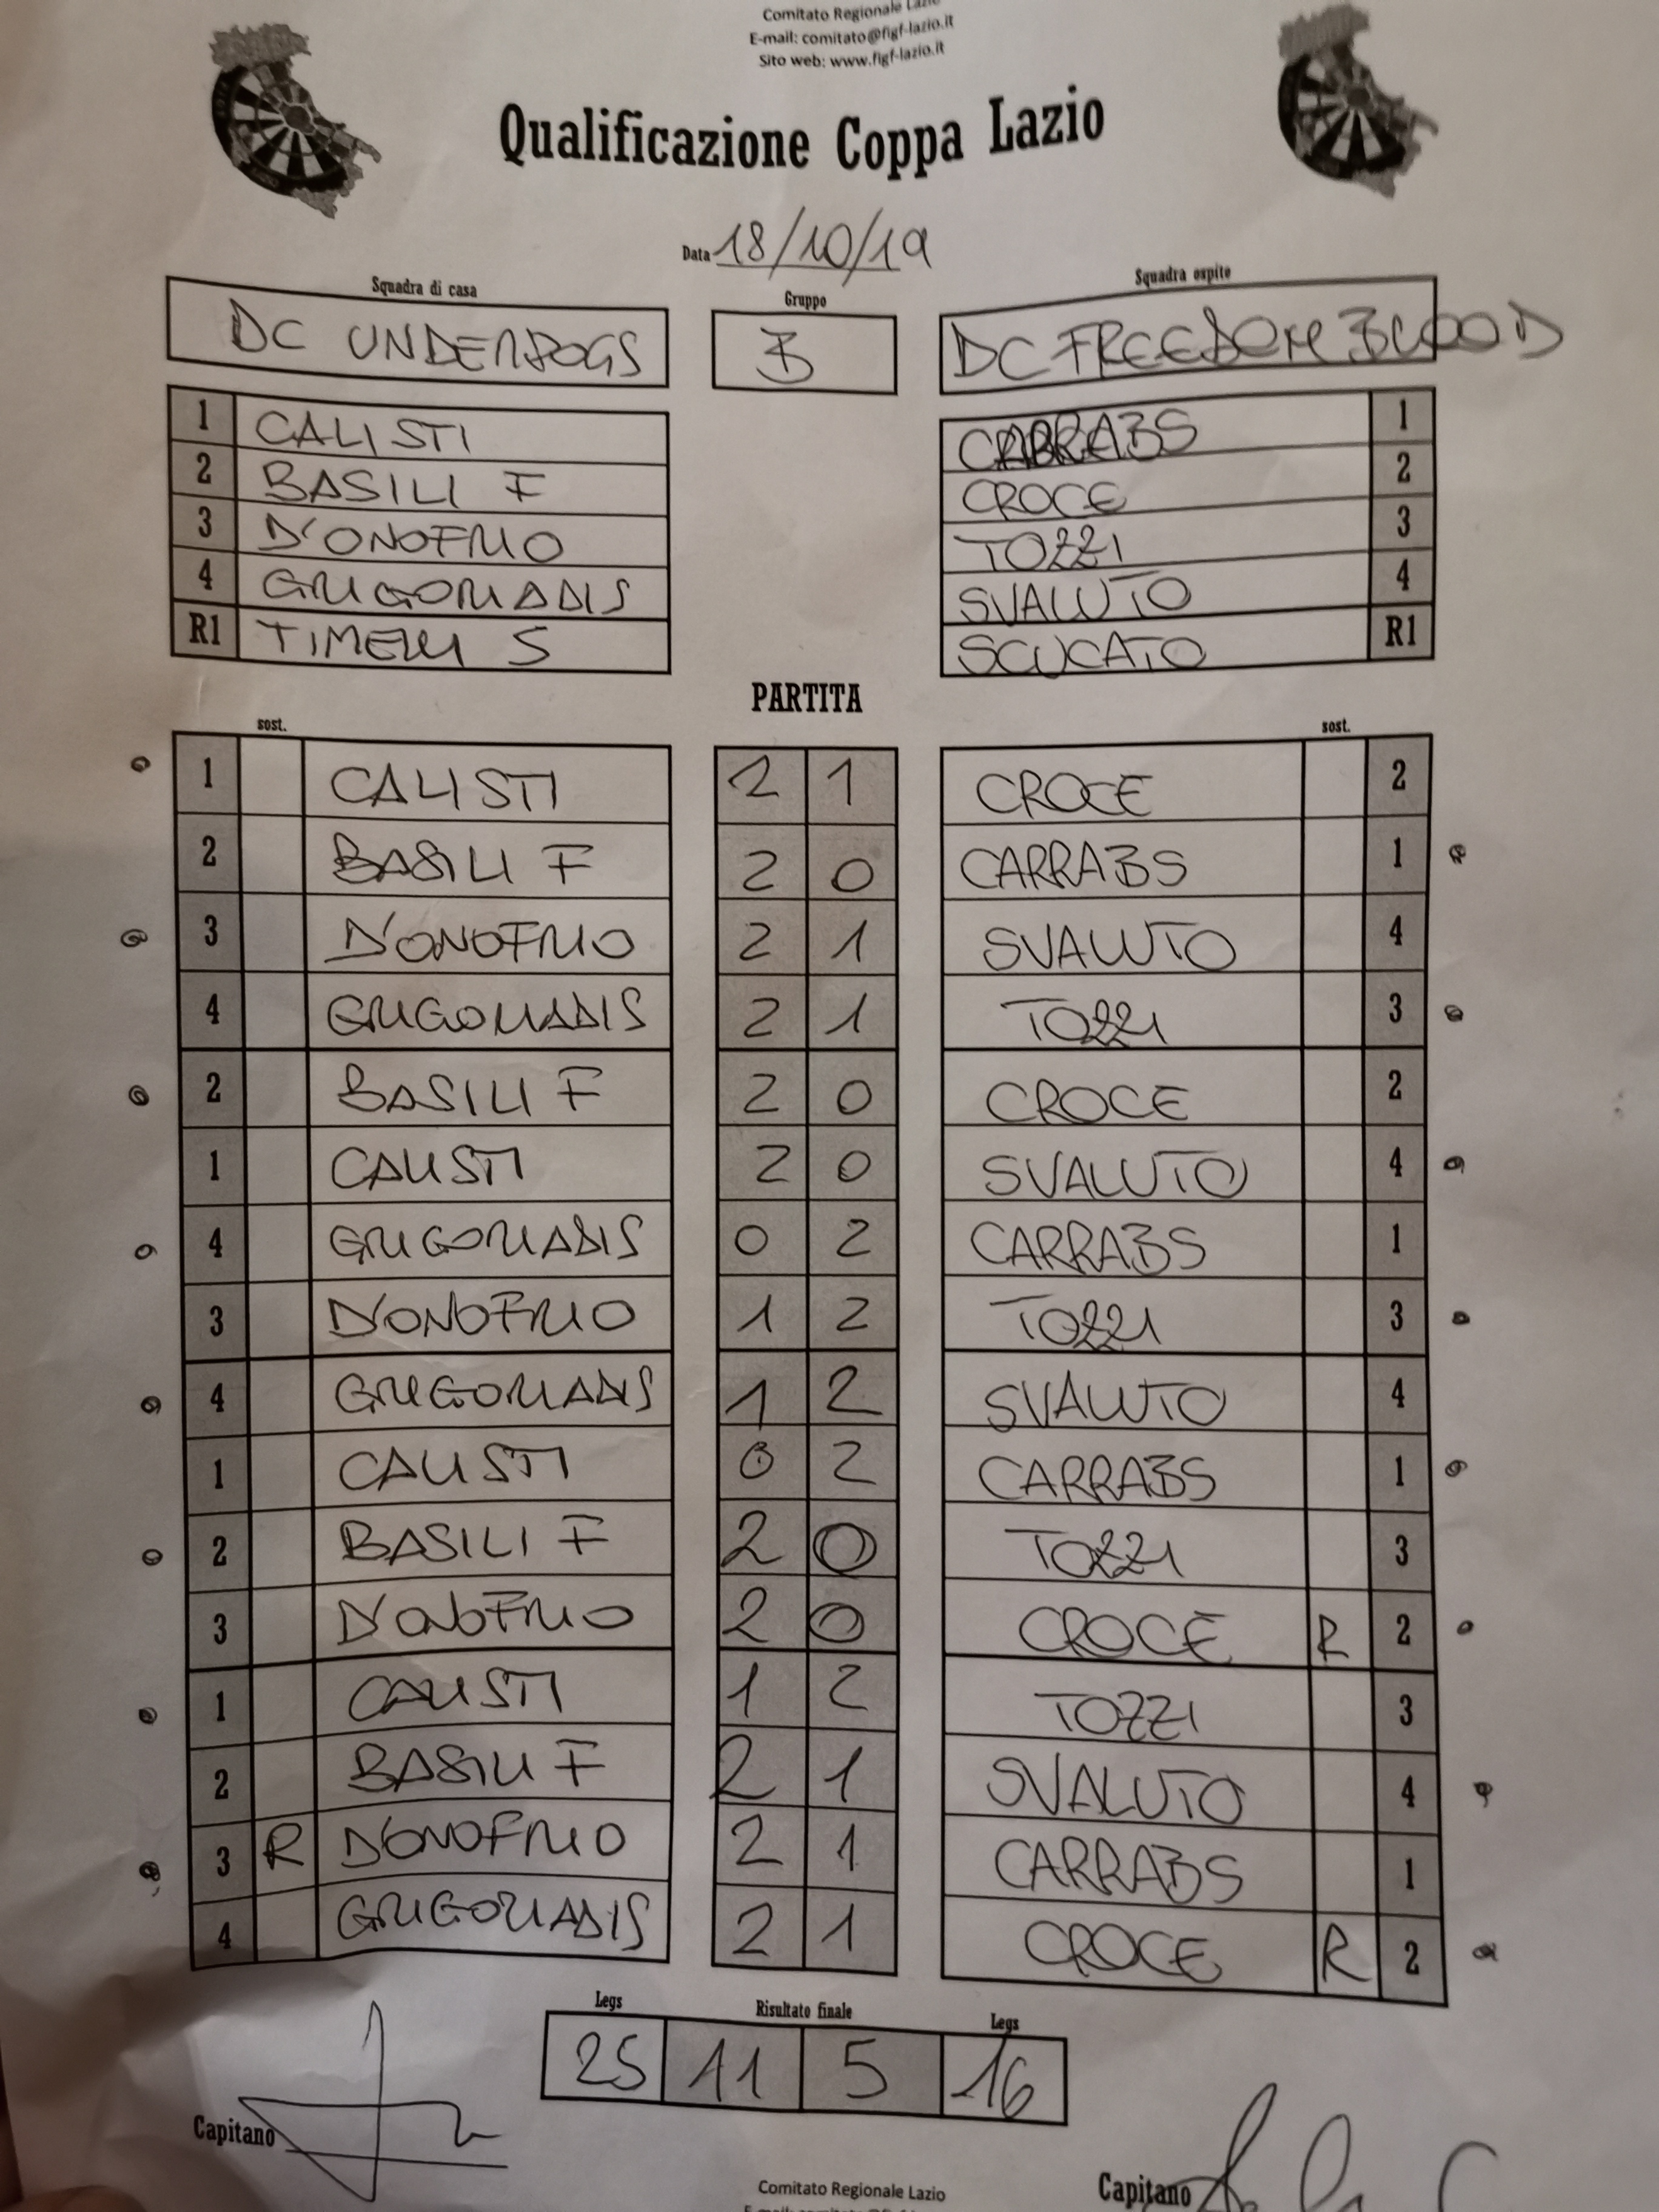 Comitato Regionale Lazio
E-mail: comitato@figf-lazio.it
Sito web: www.figf-lazio.it
Qualificazione Coppa Lazio
Data 18/10/19
Squadra di casa Gruppo Squadra ospite
DC UNDERDOGS B DC FREEDOM BLOOD
1 CALISTI CARRABS 1
2 BASILI F CROCE 2
3 D'ONOFRIO TOZZI 3
4 GRIGORIADIS SVALUTO 4
R1 TIMELLI S SCUCATO R1
PARTITA
sost. sost.
1 CALISTI 2 1 CROCE 2
2 BASILI F 2 0 CARRABS 1
3 D'ONOFRIO 2 1 SVALUTO 4
4 GRIGORIADIS 2 1 TOZZI 3
2 BASILI F 2 0 CROCE 2
1 CALISTI 2 0 SVALUTO 4
4 GRIGORIADIS 0 2 CARRABS 1
3 D'ONOFRIO 1 2 TOZZI 3
4 GRIGORIADIS 1 2 SVALUTO 4
1 CALISTI 0 2 CARRABS 1
2 BASILI F 2 0 TOZZI 3
3 D'ONOFRIO 2 0 CROCE R 2
1 CALISTI 1 2 TOZZI 3
2 BASILI F 2 1 SVALUTO 4
3 R D'ONOFRIO 2 1 CARRABS 1
4 GRIGORIADIS 2 1 CROCE R 2
Legs Risultato finale Legs
25 11 5 16
Capitano Capitano
Comitato Regionale Lazio